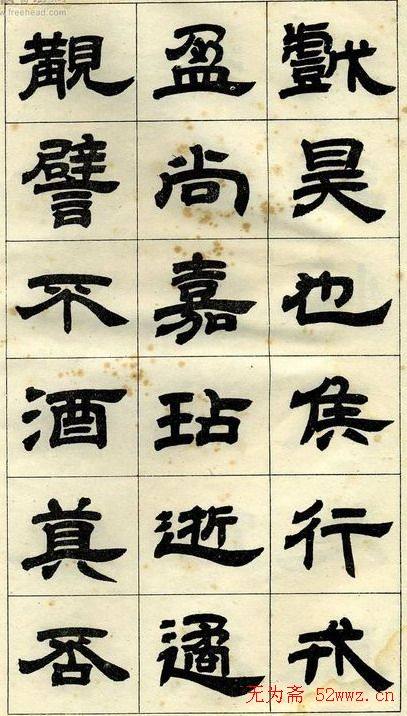 www.freehead.com
昊也侯行戎
盈尚嘉玷逝遹
譬不酒真否
无为斋 52wwz.cn